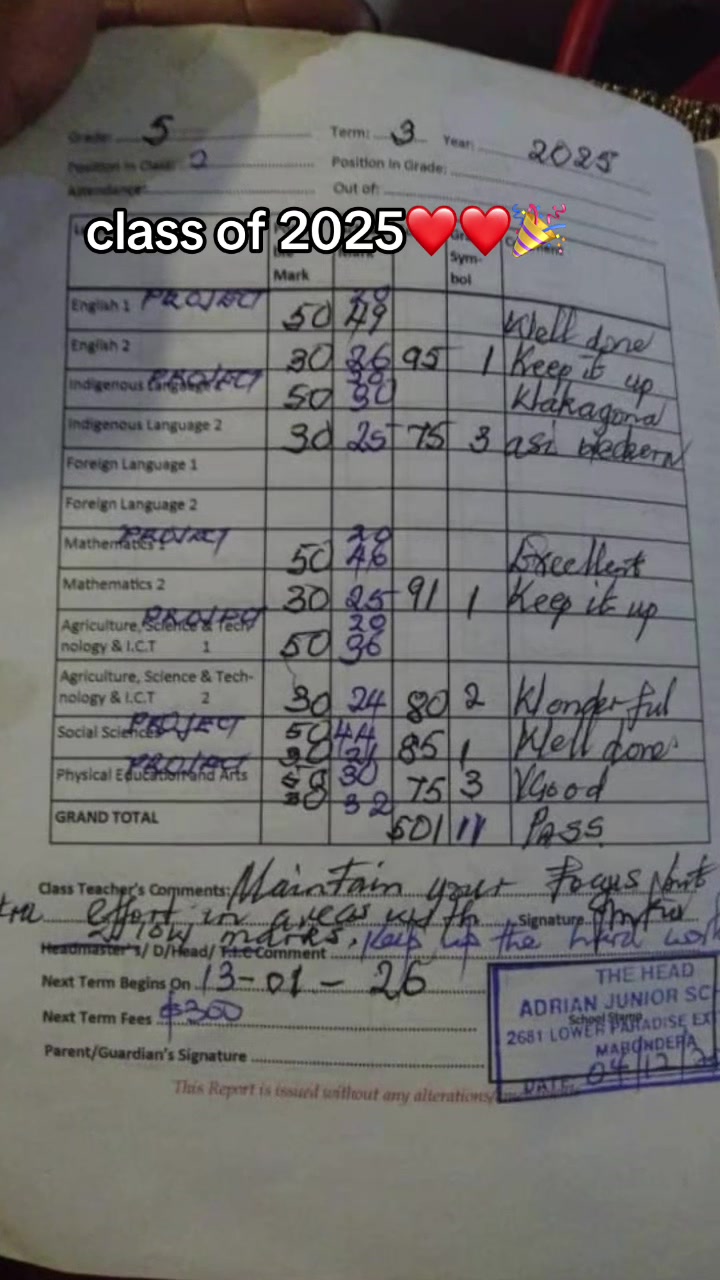 Grade: 5 Term: 3 Year: 2025
Position in Class: 2 Position in Grade:
Attendance: Out of:
class of 2025❤️❤️🎉
Mark Sym-
bol
English 1 PROJECT 50 20 49 Well done
English 2 30 26 95 1 Keep it up
Indigenous Language PROJECT 50 20 30 Wakagona
Indigenous Language 2 30 25 75 3 asi
Foreign Language 1
Foreign Language 2
Mathematics 1 PROJECT 50 20 46 Excellent
Mathematics 2 30 25 91 1 Keep it up
Agriculture, Science & Tech- PROJECT 20
nology & I.C.T 1 50 36
Agriculture, Science & Tech-
nology & I.C.T 2 30 24 80 2 Wonderful
Social Sciences PROJECT 50 44
30 21 85 1 Well done
Physical Education and Arts PROJECT 30
32 75 3 VGood
GRAND TOTAL 501 11 PASS
Class Teacher's Comments: Maintain your Focus
effort in areas with Signature
low marks. Keep up the hard work
Headmaster's/ D/Head/ T.I.C Comment
Next Term Begins On 13-01-26
Next Term Fees $300
Parent/Guardian's Signature
THE HEAD
ADRIAN JUNIOR SC
School Stamp
2681 LOWER PARADISE EX
MARONDERA
DATE: 04/12/2
This Report is issued without any alterations/